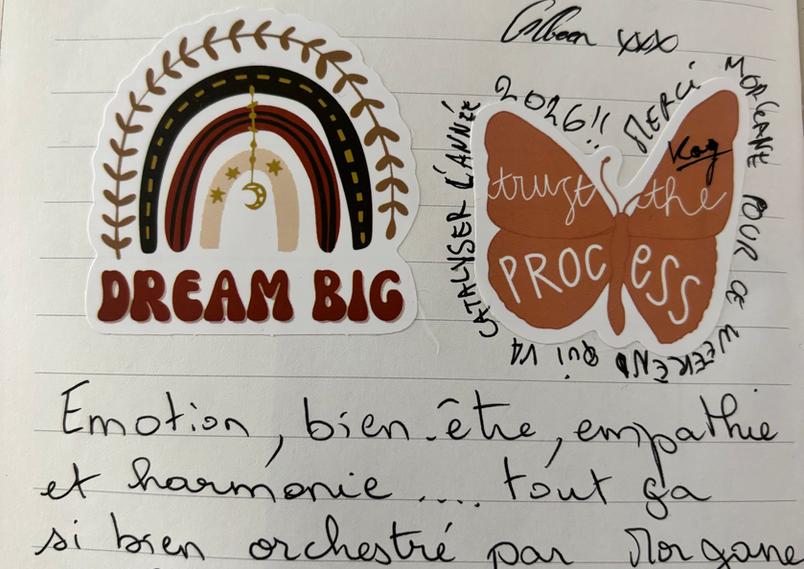 xxx
MERCI MORGANE POUR CE WEEKEND QUI VA CATALYSER L'ANNÉE 2026!!
trust the
PROCESS
DREAM BIG
Emotion, bien-être, empathie
et harmonie .... tout ça
si bien orchestré par Morgane